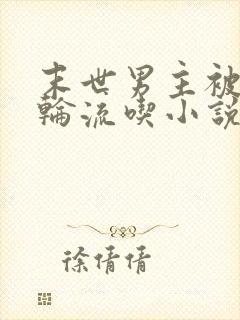 末世男主被
輪流喫小說
徐倩倩